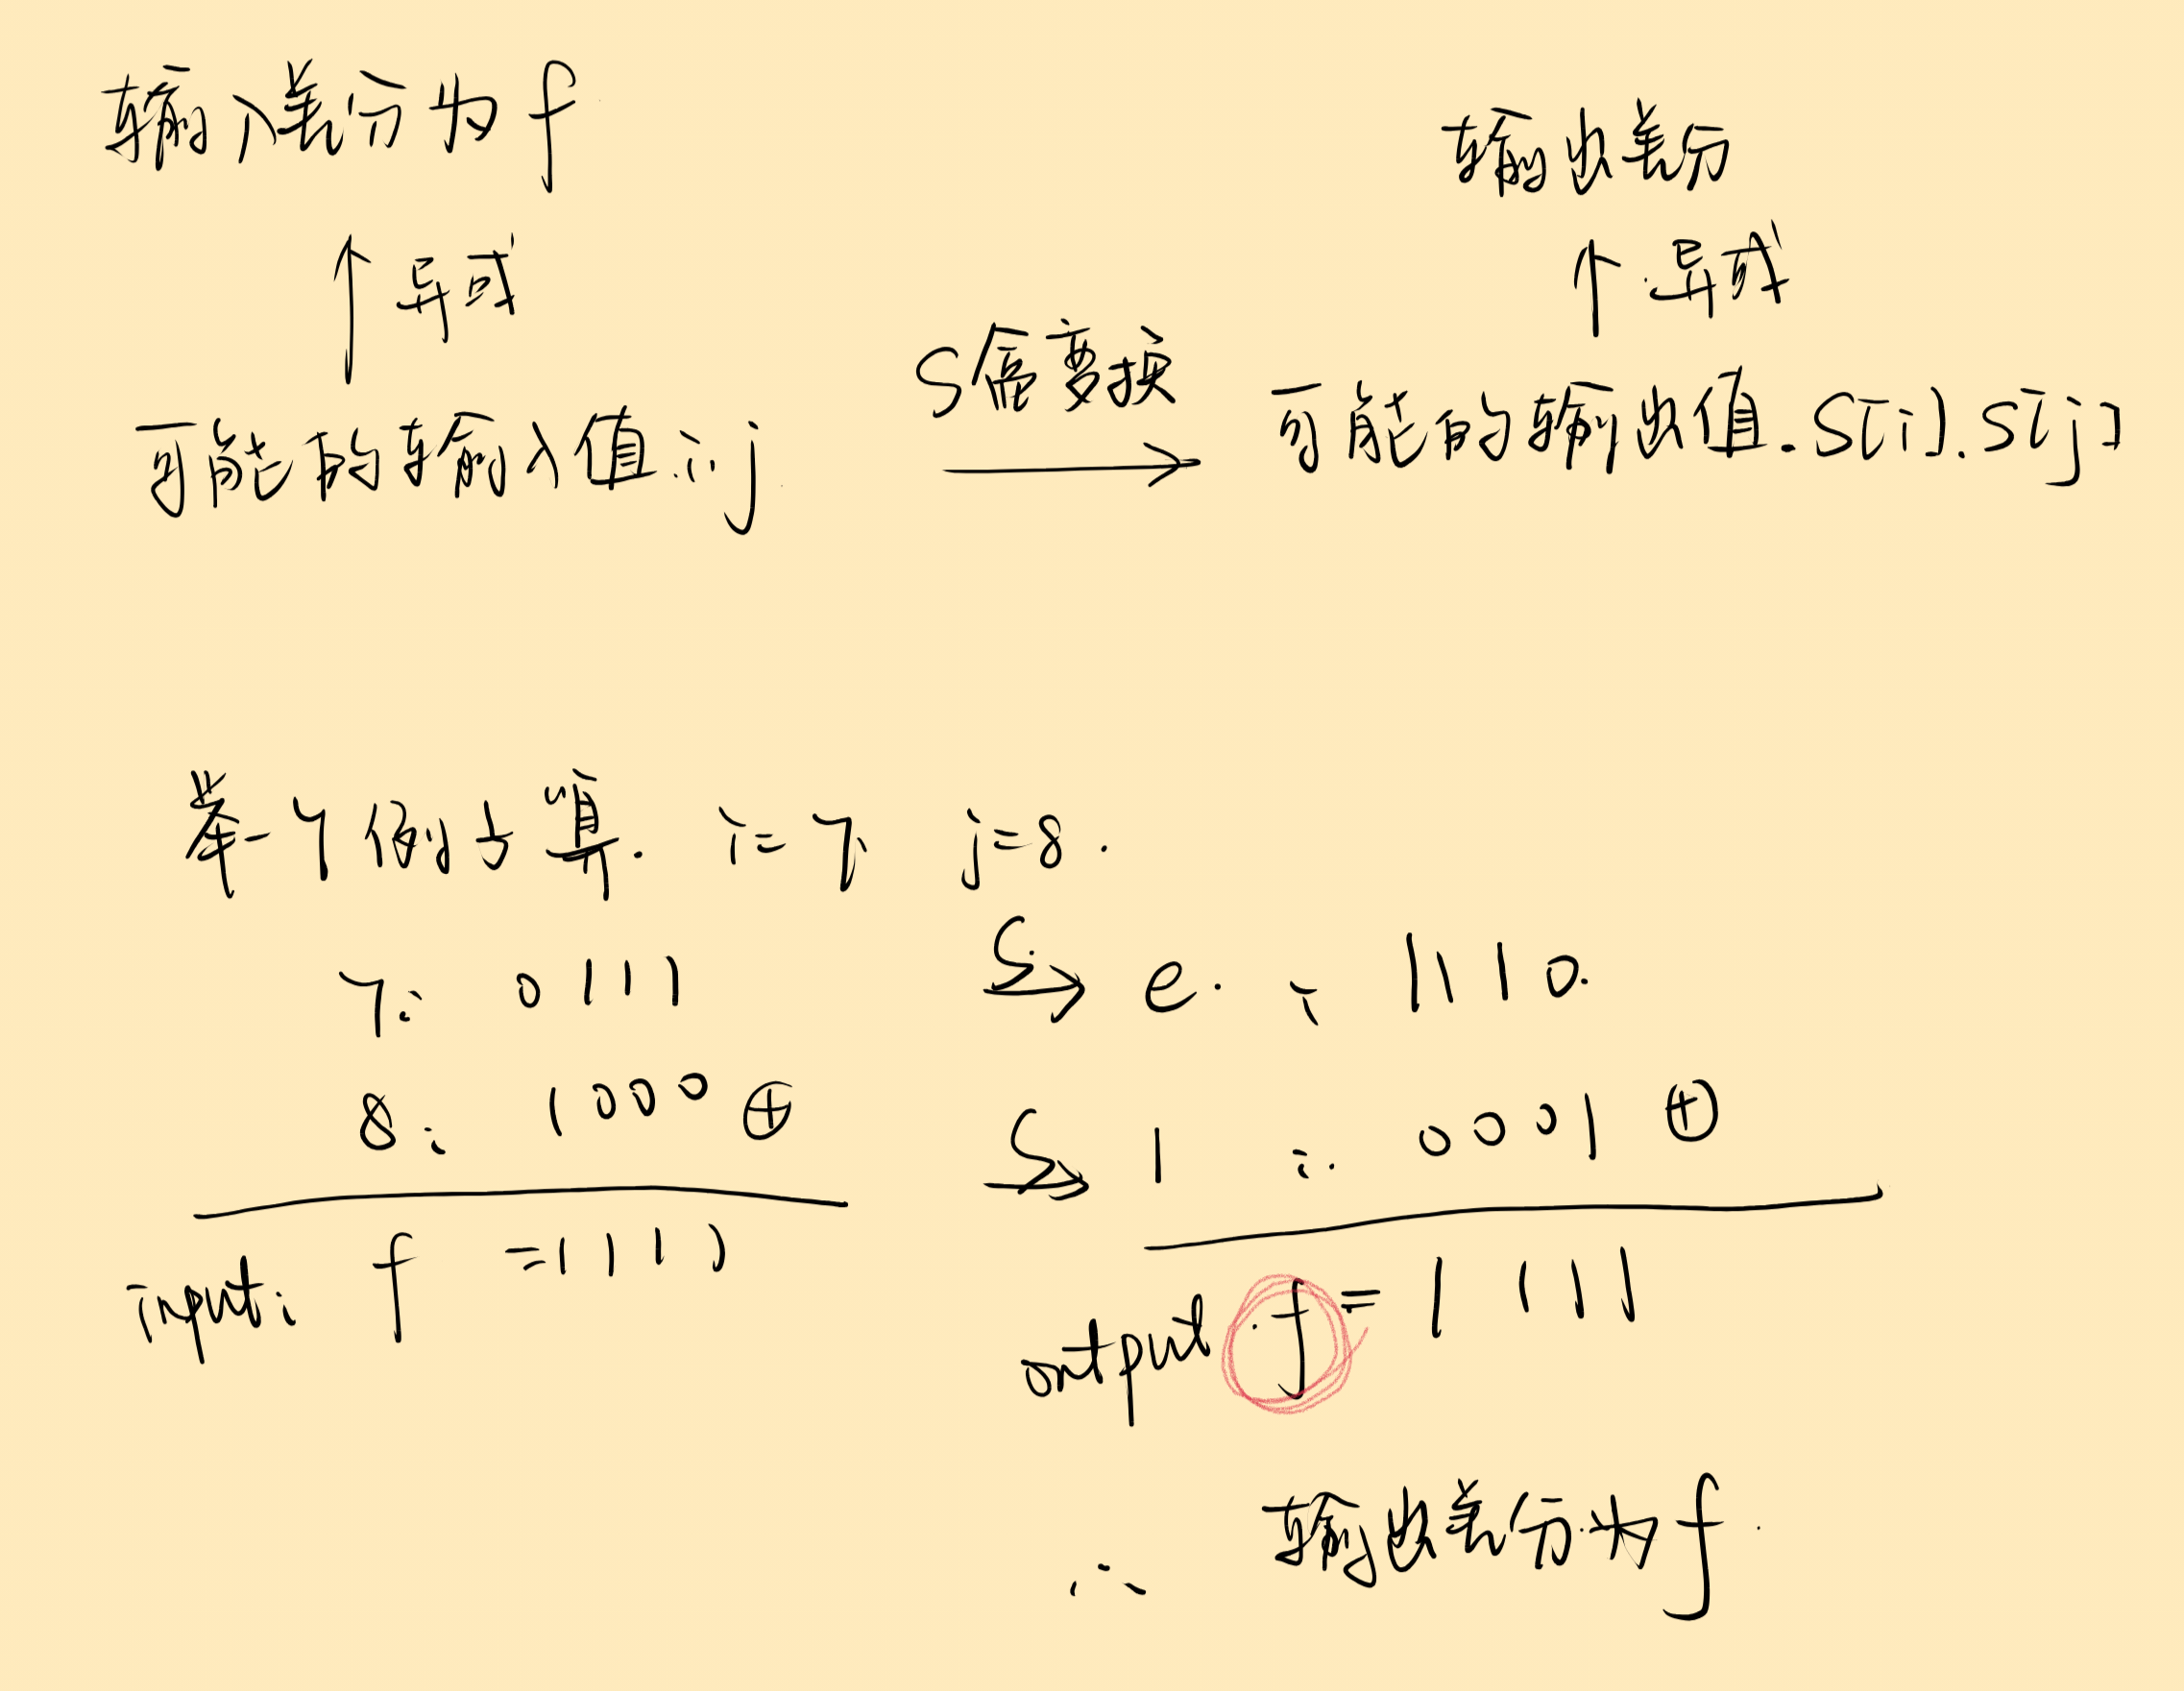 输入差分为f
输出差分
↑异或
↑异或
S盒变换
可能的输入值i.j
→
可能的输出值.S[i].S[j]
举个例子算. i=7, j=8.
7: 0111 S→ e. : 1110.
8: 1000 ⊕ S→ 1 : 0001 ⊕
input: f =1111
output. f = 1111
∴ 输出差分为f.